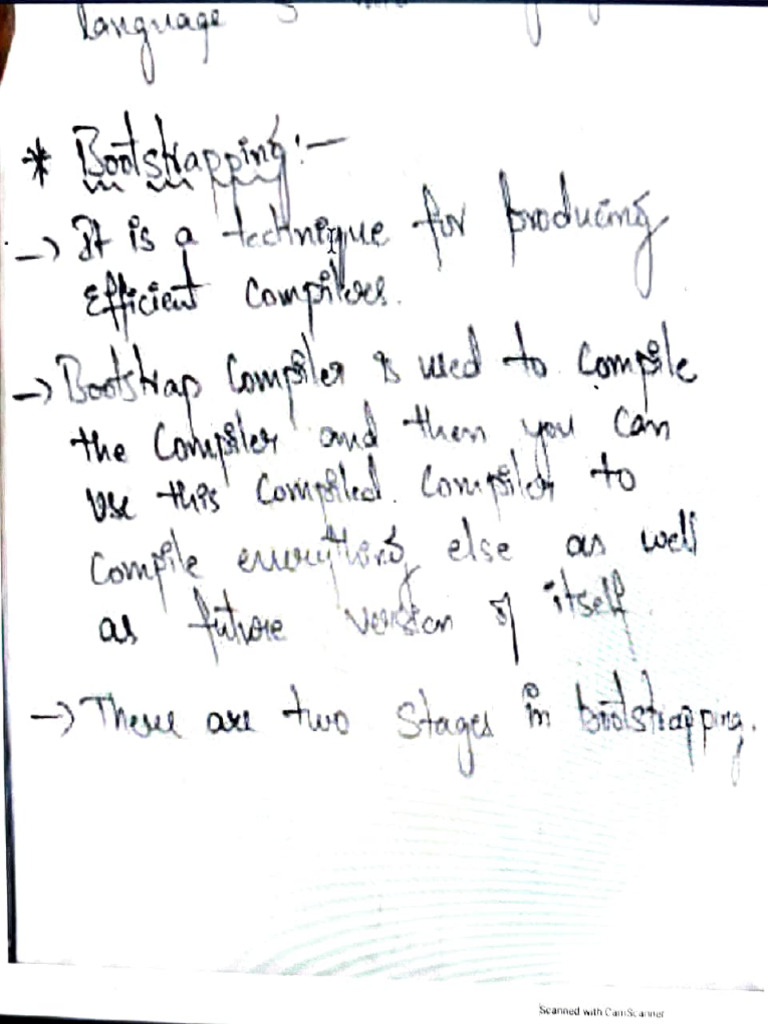 language
* Bootstrapping:-
-> It is a technique for producing
Efficient Compilers.
-> Bootstrap Compiler is used to Compile
the Compiler and then you can
use this Compiled. Compiler to
Compile everything else as well
as future version of itself
-> There are two stages in bootstrapping.
Scanned with CamScanner